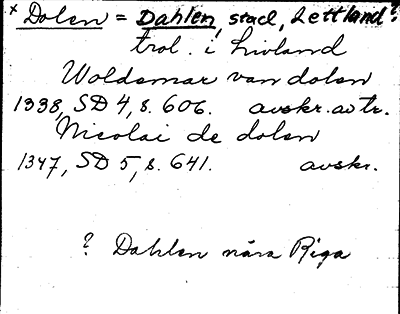 × Dolen = Dahlen, stad, Lettland?
trol. i Livland
Woldemar van dolen
1338, SD 4, s. 606. avskr. av tr.
Nicolai de dolen
1347, SD 5, s. 641. avskr.
? Dahlen nära Riga